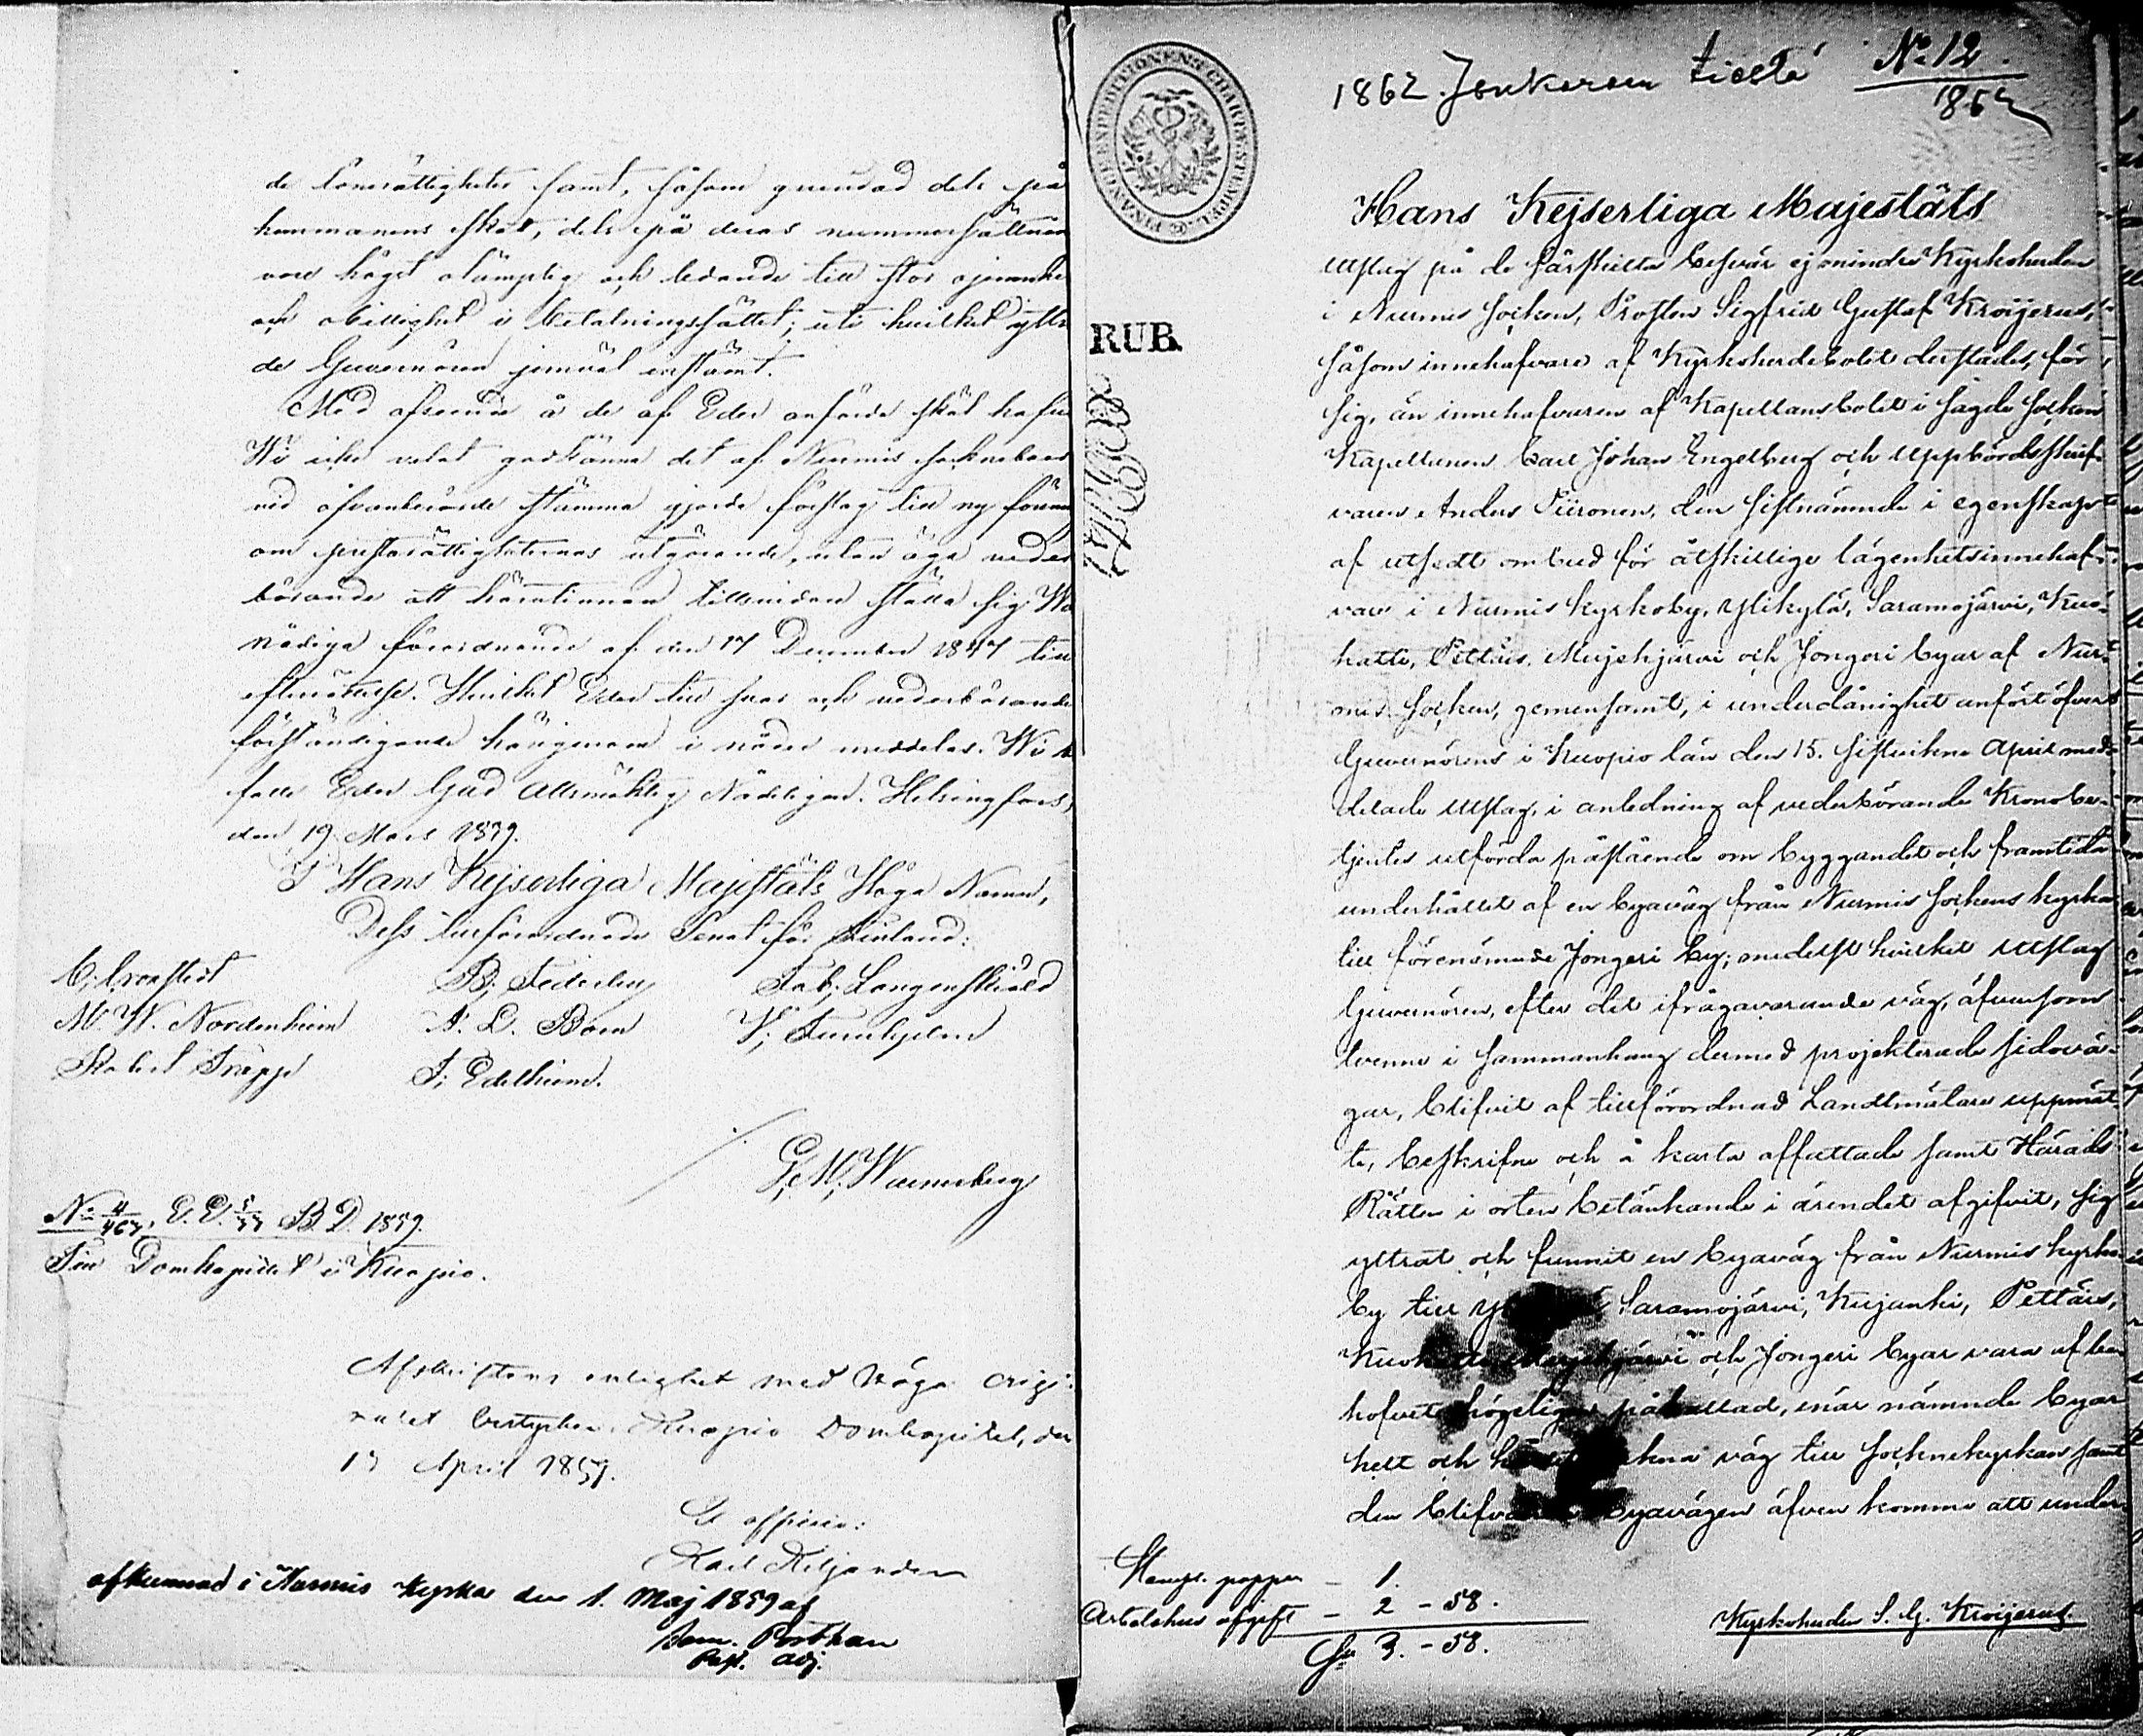 de lönerättigheter samt, såsom grundad dels på
kommanens skat, dels på deras nummersättning
vore högst olämplig och ledande till stor ojemnhet
och obillighet i betalningssättet; uti hvilket yttran
de Guvernören jemväl instämt.
Med afseende å de af Eder anförde skäl hafve
Wi icke velat godkänna det af Nurmis sockneboer
vid ofvanberörde stämma gjorde förslag till ny
om presterättigheternas utgörande, utan äga veder
börande att härutinnan tillsvidare ställa sig Wå
nådiga förordnande af den 17 December 1847 till
efterrättelse. Hvilket Eder till svar och vederbörandes
förständigande härigenom i nåder meddelas. Wi be
falle Eder Gud Allsmäktig Nådeligen. Helsingfors,
den 19 Mars 1859.
I Hans Kejserliga Majestäts Höga Namn,
Dess tillförordnade Senat för Finland:
C; Cronstedt B; Federley Fab; Langenskiöld
M. W. Nordenheim A. L. Born V; Furuhjelm
Robert Trapp J; Edelheim.
G; M; Waenerberg
No 4/467. E. E. 5/77 B. D. 1859.
Till Domkapitlet i Kuopio.
Afskriftens enlighet med höga origi-
nalet bestyrker. Kuopio Domkapitel, den
13 April 1859.
Ex officio:
Karl Kiljander
afkunnad i Nurmis kyrka den 1. Maj 1859 af
Sam. Posthan
Past. adj.
FINANCE EXPEDITIONENS CHARTÆ STEMPEL
RUB.
1862 Jonkeren tiestä No 12.
1862
Hans Kejserliga Majestäts
utslag på de särskilta besvär ej mindre Kyrkoherden
i Nurmis socken, Prosten Sigfrid Gustaf Kroijerus,
såsom innehafvare af Kyrkoherdebolet derstädes, för
sig, än innehafvaren af Kapellansbolet i sagde socken
Kapellanen Carl Johan Engelberg och Uppbördsskrif-
varen Anders Piironen, den sistnämnde i egenskap
af utsedt ombud för åtskillige lägenhetsinnehaf-
vare i Nurmis kyrkoby, Ylikylä, Saramojärvi, Kuo-
hatti, Pettäis, Mujehjärvi och Jongeri byar af Nur-
mis socken, gemensamt, i underdånighet anfört öfver
Guvernörens i Kuopio län den 15. sistvikne April med-
delade utslag, i anledning af vederbörande Kronobe-
tjentes utförda påstående om byggandet och framtida
underhållet af en byaväg från Nurmis sockens kyrka
till förenämnde Jongeri by; medelst hvilket utslag
Guvernören, efter det ifrågavarande väg, äfvensom
tvenne i sammanhang dermed projekterade sidovä-
gar, blifvit af tillförordnad Landtmätare uppmät-
te, beskrifne och å karta affattade samt Härads
Rätten i orten betänkande i ärendet afgifvit, sig
yttrat och funnit en byaväg från Nurmis kyrko-
by till Saramojärvi, Kujanki, Pettäis,
Mujehjärvi och Jongeri byar vara af be-
hofvet högeligen påkallad, enär nämnde byar
helt och väg till sockenkyrkan samt
den byavägen äfven komme att under-
Stempl. papper - 1.
Arbetshus afgift - 2 - 58.
Sa 3. - 58.
Kyrkoherden S. G. Kroijerus.